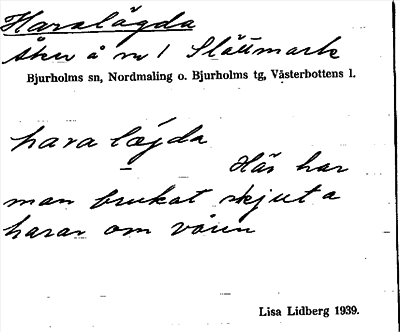 Haralägda
Åker å nr 1 Slättmark
Bjurholms sn, Nordmaling o. Bjurholms tg, Västerbottens l.
hara lægda
Här har
man brukat skjuta
harar om våren
Lisa Lidberg 1939.